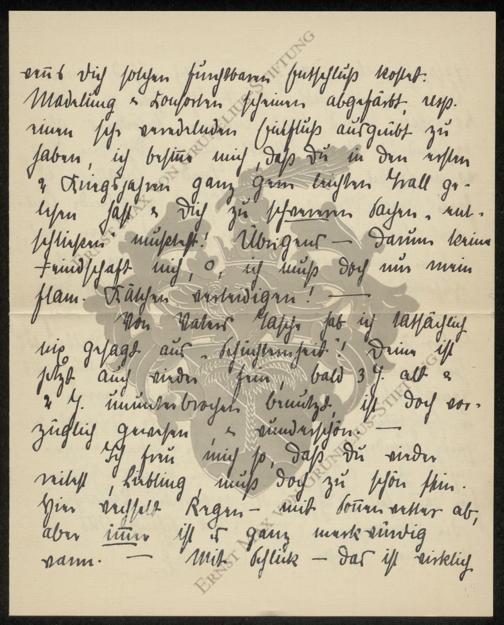 wenn's Dich solchen furchtbaren Entschluß kostet.
Madelung & Konsorten scheinen abgefärbt, resp.
einen sehr veredelnden Einfluß ausgeübt zu
haben, ich besinne mich, daß Du in den ersten
2 Kriegsjahren ganz gern leichten Krall ge-
lesen hast & Dich zu schweren Sachen „ent-
schließen“ mußtest! Übrigens — darum keine
Feindschaft nich, o, ich muß doch nur mein
flam. Kätchen verteidigen! —
Von Vaters Tasche hab ich tatsächlich
nix gesagt aus „Schüchternheit“! Deine ist
jetzt auch wieder fein, bald 3 J. alt &
2 J. ununterbrochen benutzt, ist doch vor-
züglich gewesen & wunderschön. —
Ich freu mich so, daß Du wieder
reitest, Liebling, muß doch zu schön sein.
Hier wechselt Regen- mit Sonnenwetter ab,
aber immer ist es ganz merkwürdig
warm. — Mit Schlick — das ist wirklich
ERNST MAX VON GRUNELIUS-STIFTUNG
ERNST MAX VON GRUNELIUS-STIFTUNG